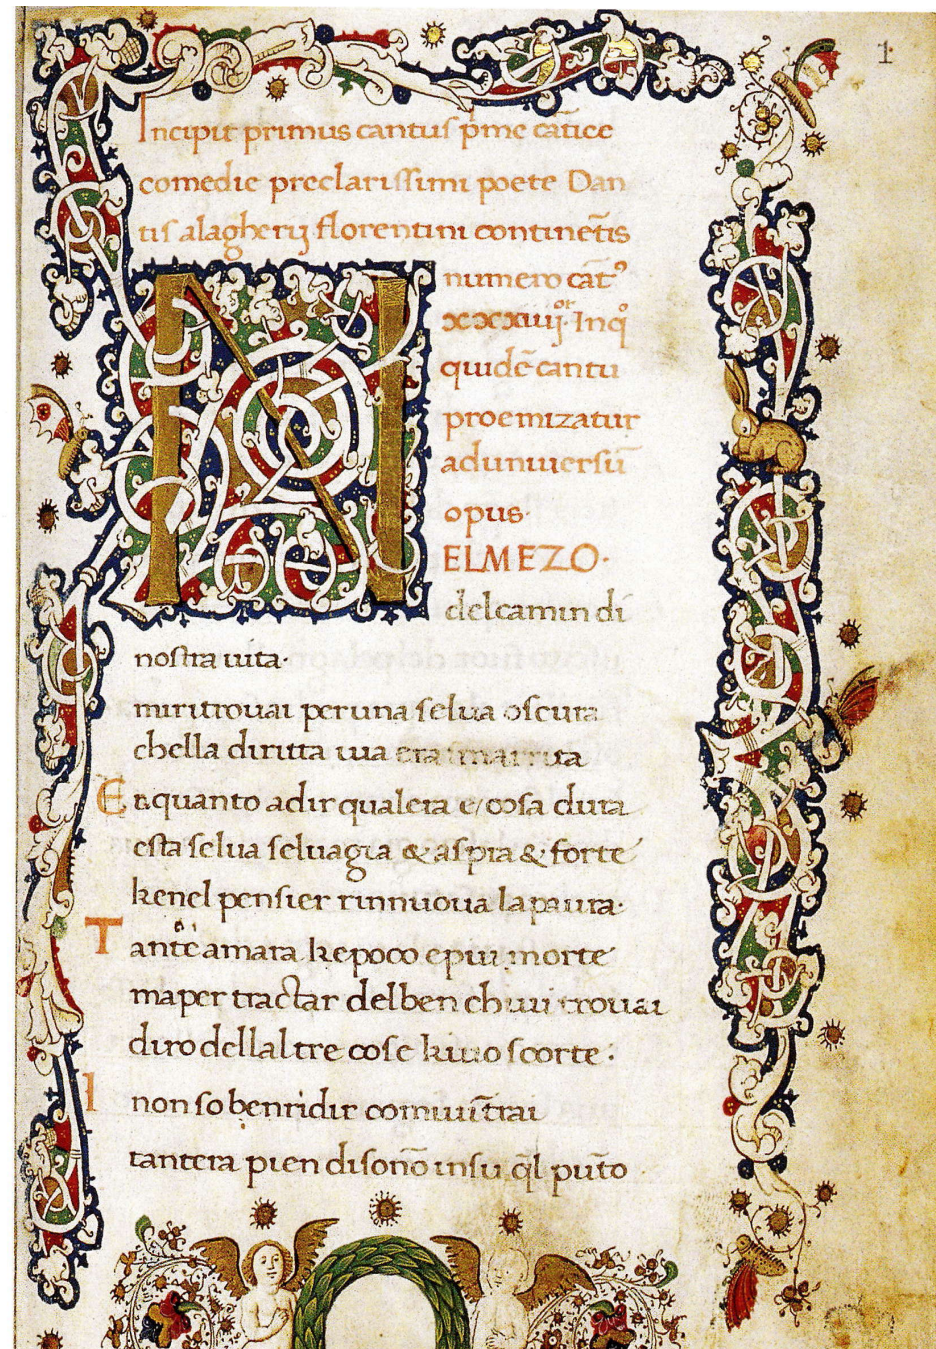 1
Incipit primus cantus p̄me cātice
comedie preclarissimi poete Dan
tis alagherij florentini continētis
numero cāt⁹
xxxiiijoꝛ. Inq̊
quidē cantu
proemizatur
ad uniuersū
opus.
N ELMEZO.
del camin di
nostra uita.
mi ritrouai per una selua oscura
chella diritta uia era smarrita
E t quanto adir qualera e/ cosa dura
esta selua seluagia & aspra & forte
kenel pensier rinnuoua la paura.
T ant e amara ke poco e piu morte
ma per tractar del ben chiui trouai
diro dellaltre cose kiuo scorte:
I non so ben ridir comiui ītrai
tantera pien di sonō insu q̄l pūto